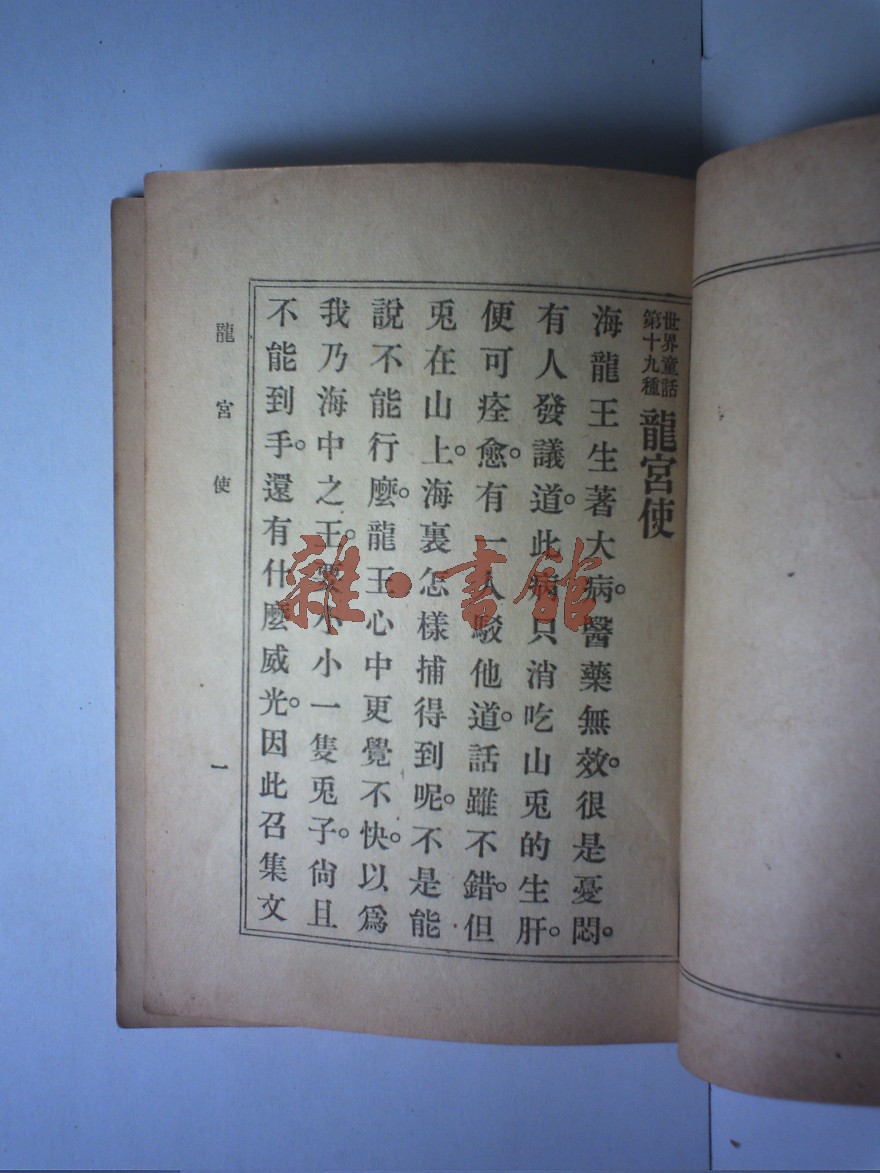 世界童話
第十九種
龍宮使
海龍王生著大病。醫藥無效。很是憂悶。
有人發議道。此病只消吃山兎的生肝。
便可痊愈。有一人駁他道。話雖不錯。但
兎在山上。海裏怎樣捕得到呢。不是能
說不能行麼。龍王心中更覺不快。以爲
我乃海中之王。要小小一隻兎子。尙且
不能到手。還有什麼威光。因此召集文
龍宮使
一
雜·書館